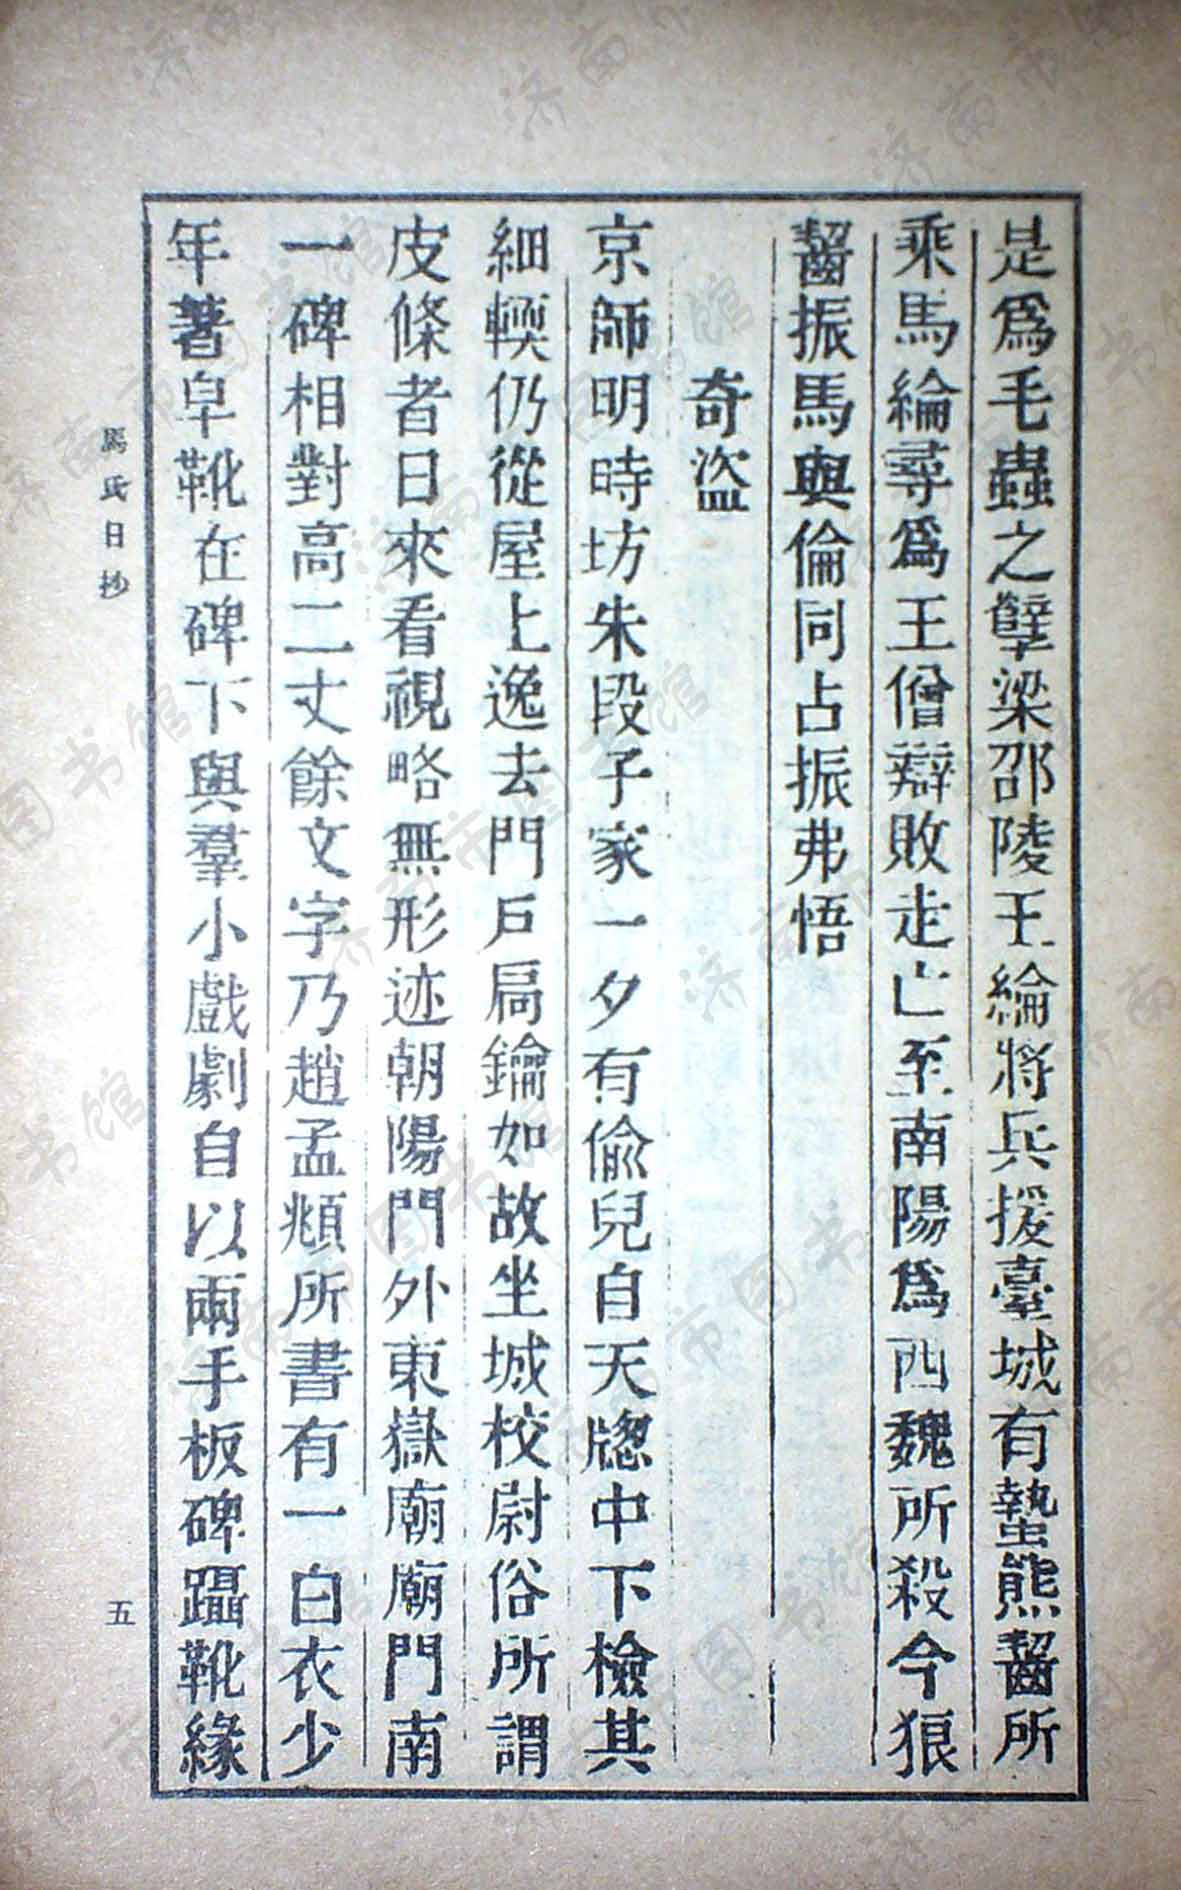 是爲毛蟲之孽梁邵陵王綸將兵援臺城有蟄熊齧所
乘馬綸尋爲王僧辯敗走亡至南陽爲西魏所殺今狼
齧振馬與倫同占振弗悟
奇盜
京師明時坊朱段子家一夕有偷兒自天牕中下檢其
細輭仍從屋上逸去門戶扃鑰如故坐城校尉俗所謂
皮條者日來看視略無形迹朝陽門外東嶽廟廟門南
一碑相對高二丈餘文字乃趙孟頫所書有一白衣少
年著皁靴在碑下與羣小戲劇自以兩手板碑躡靴緣
馬氏日抄
五
济南市图书馆